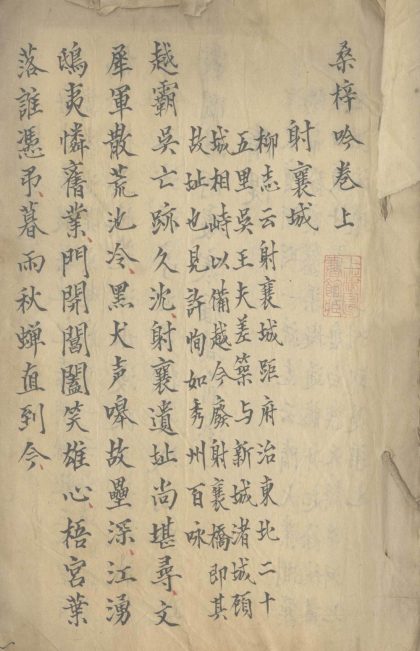 桑梓吟卷上
射襄城
柳志云射襄城距府治東北二十
五里吴王夫差築与新城渚城頋
城相峙以備越今廢射襄橋即其
故址也見許恂如秀州百咏
越霸吴亡跡久沈射襄遺址尚堪尋文
犀軍散荒池冷黑犬声嘷故壘深江湧
鴟夷憐舊業門開閶闔笑雄心梧宫葉
落誰憑弔暮雨秋蟬直到今